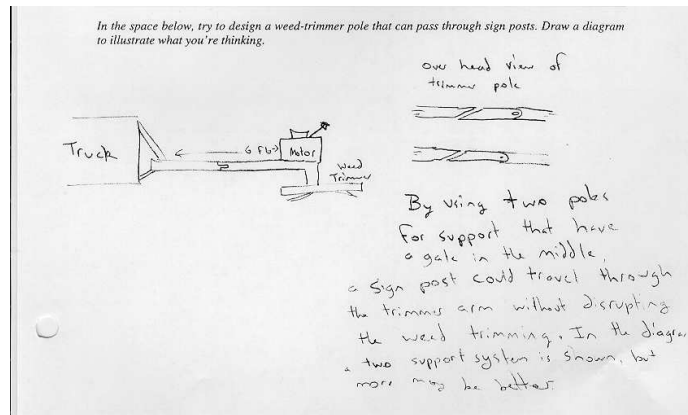 In the space below, try to design a weed-trimmer pole that can pass through sign posts. Draw a diagram
to illustrate what you're thinking.
Over head view of
trimmer pole
Truck
6 ft
Motor
Weed
Trimmer
By using two poles
for support that have
a gate in the middle,
a sign post could travel through
the trimmer arm without disrupting
the weed trimming. In the diagram
a two support system is shown, but
more may be better.